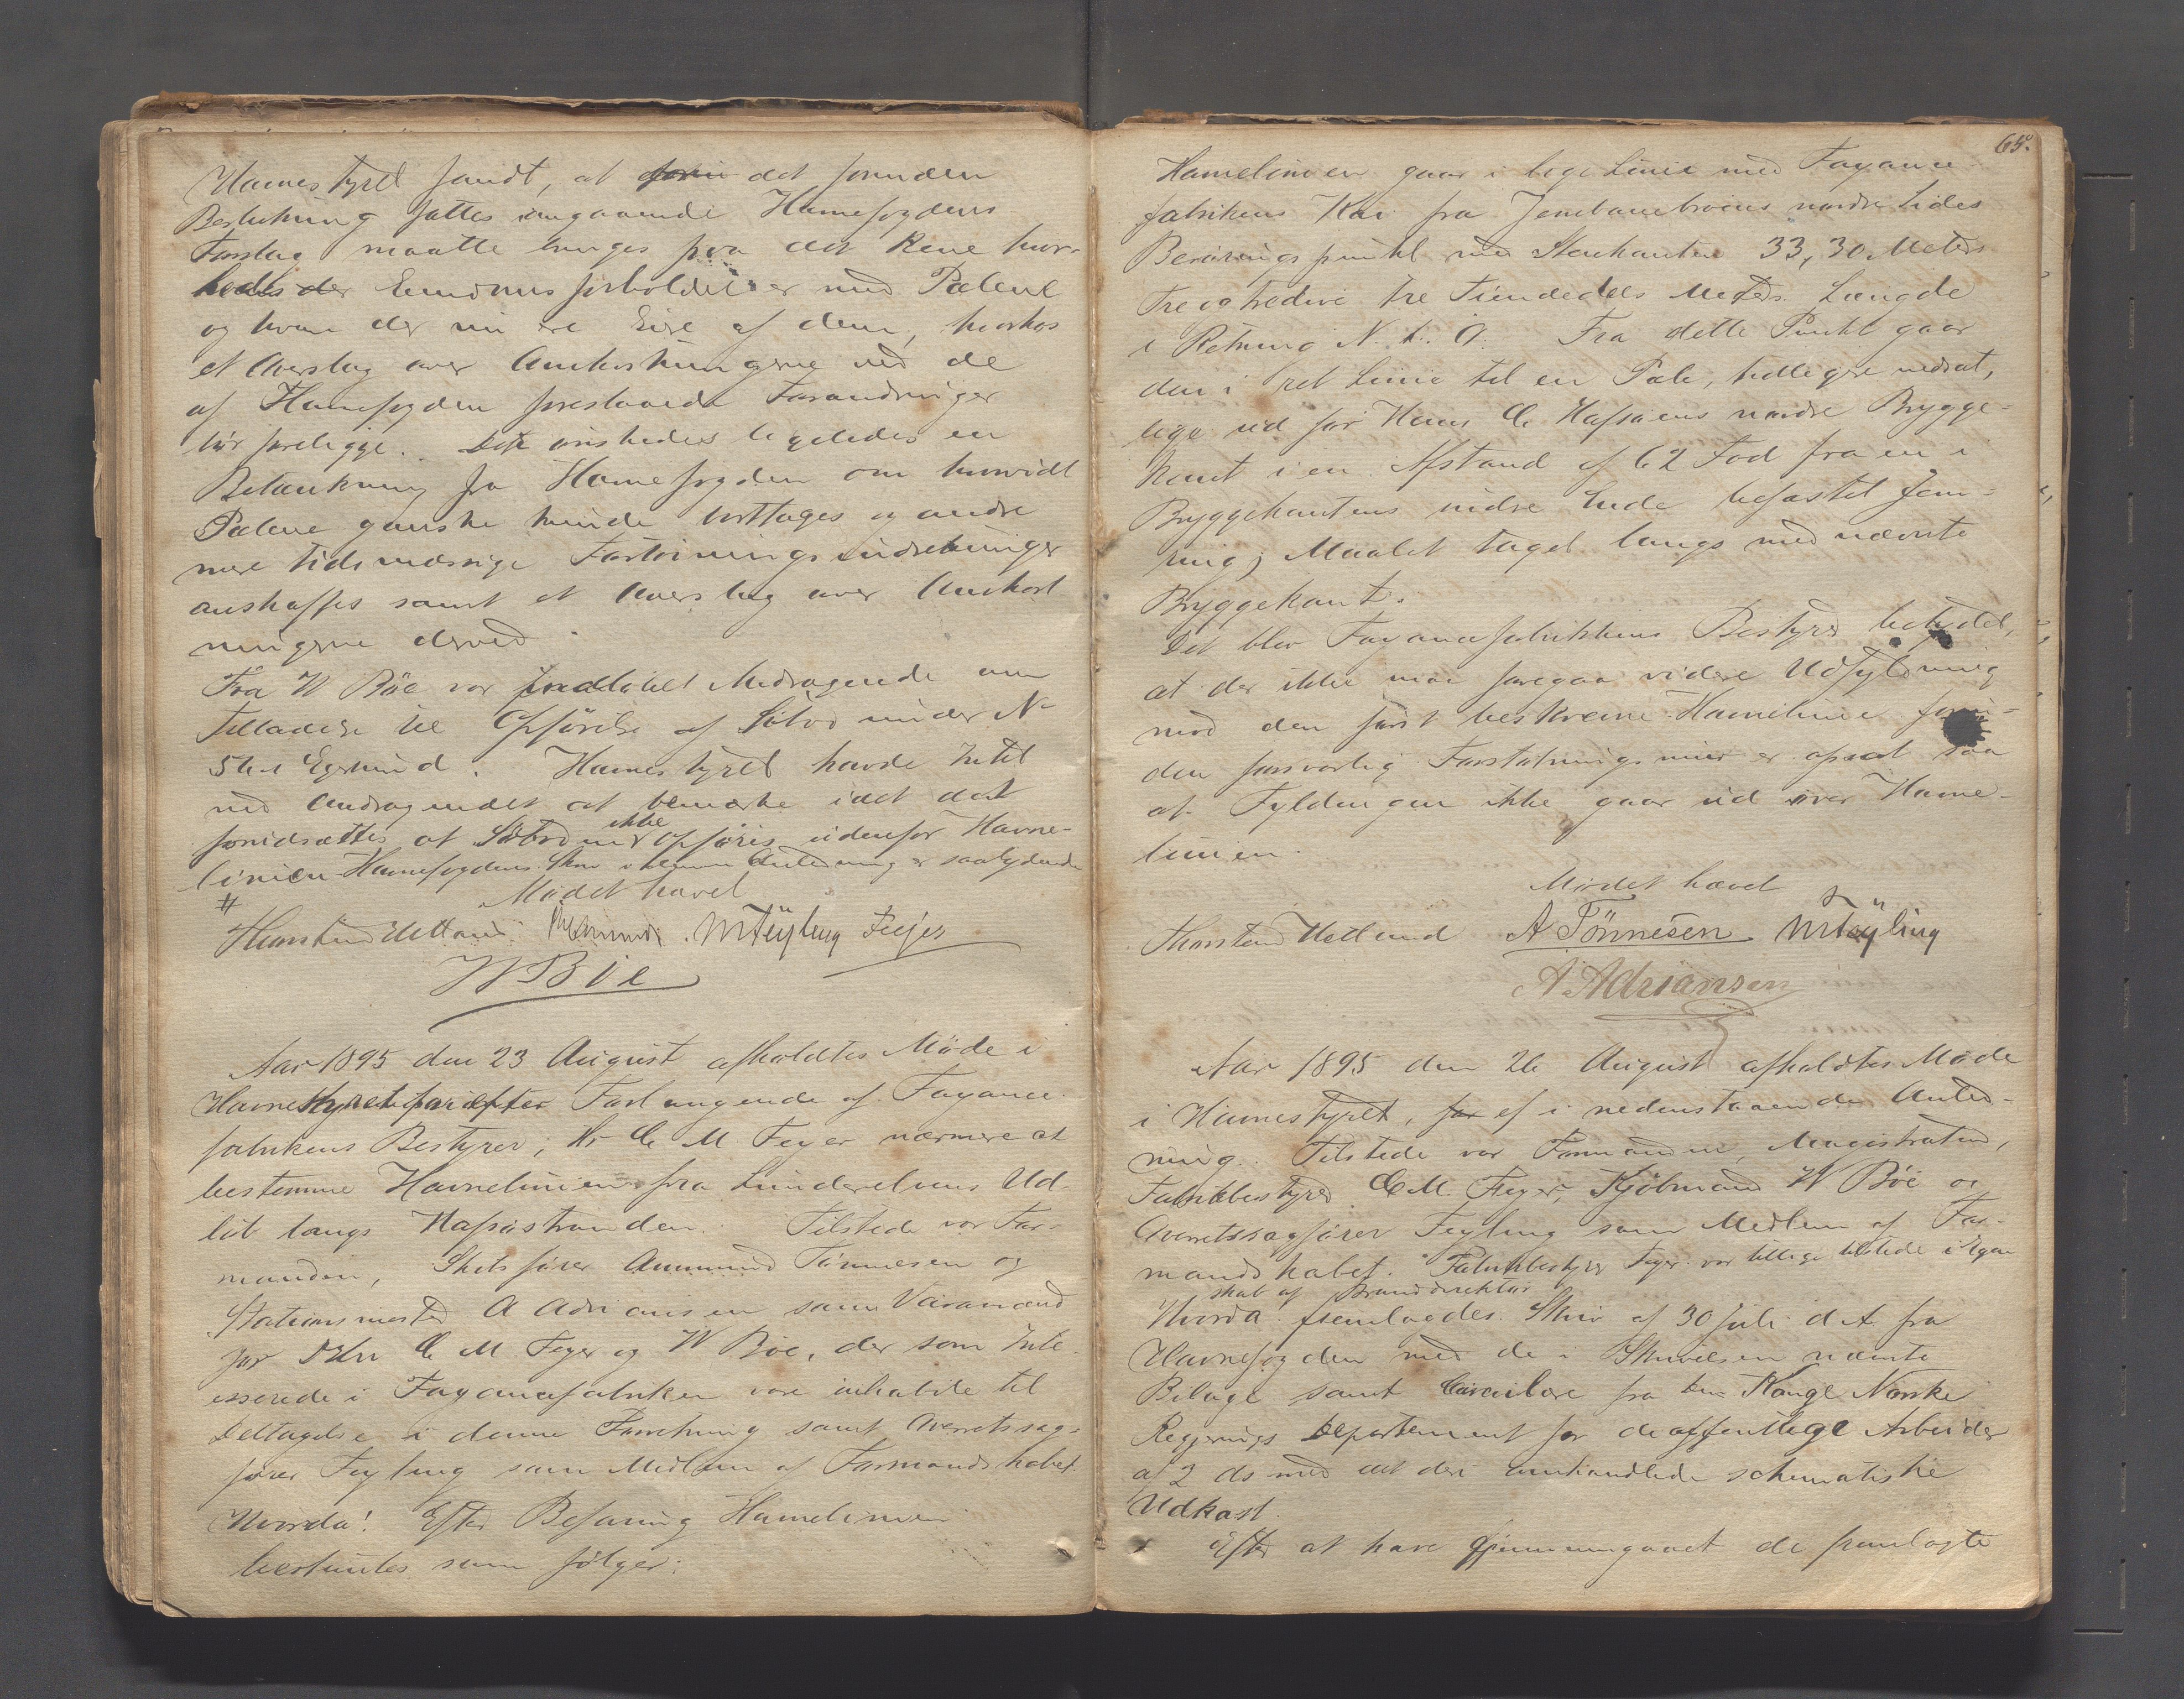 Havnestyret fandt, at det forinden
Beslutning fattes angaaende Havnefogdens
Forslag maatte bringes paa det Rene hvor-
ledes der Eiendomsforholdet er med Pælene
og hvem der nu ere Eier af dem, hvorhos
et Overslag over Omkostningerne ved de
af Havnefogden foreslaaede Forandringer
bör foreligge. Det önskedes ligeledes en
Betænkning fra Havnefogden om hvorvidt
Pælene ganske kunde borttages og andre
mere tidsmæssige Fortöiningsindretninger
anskaffes samt et Overslag over Omkost-
ningerne derved.
Fra W Böe var indlöbet Andragende om
Tilladelse til Opförelse af Söbod under No
5 Egersund. Havnestyret havde Intet
ved Andragendet at bemærke idet det
forudsættes at Söboden ikke opföres udenfor Havne-
linien Havnefogdens Skr i denne Anledning er saalydende
# Mödet hævet
Thorstend Uetland. M Feyling Feyer
W Böe
Aar 1895 den 23 August afholdtes Möde i
Havnestyret efter Forlangende af Fayance-
fabrikens Bestyrer, Hr C M Feyer nærmere at
bestemme Havnelinien fra Lundeelvens Ud-
löb langs Hafsöstranden. Tilstede var For-
manden, Skibsförer Ammund Tönnesen og
Stationsmester A Adriansen som Varamænd
for DHrr C M Feyer og W Böe, der som Inte-
resserede i Fayancefabriken vare inhabile til
Deltagelse i denne Forretning samt Overretssag-
förer Feyling som Medlem af Formandskabet.
Hvorda! Efter Befaring Havnelinien
bestemtes som fölger:
65.
Havnelinien gaar i lige Linie med Fayance
fabrikens Kai fra Jernbanebroens nordre Sides
Berörings punkt med Stenkanten 33,30 Meters
Tre og tredive tre Tiendedels Meters Længde
i Retning N. t. O. Fra dette Punkt gaar
den i ret Linie til en Pæle, tidligere nedsat,
lige ud for Hans C Hafsöens nordre Brygge-
kant i en Afstand af 62 Fod fra en i
Bryggekantens indre Ende befæstet Jern-
ring, Maalet taget langs med nævnte
Bryggekant.
Det blev Fayancefabrikkens Bestyrer betydet,
at der ikke maa foregaa videre Udfyldning
mod den först beskrevne Havnelinie forin-
den forsvarlig Forstötningsmur er opsat saa
at Fyldingen ikke gaar ud over Havne-
linien.
Mödet hævet
Thorstend Uetland A Tönnesen M Feyling
A Adriansen
Aar 1895 den 26 August afholdtes Möde
i Havnestyret, i nedenstaaende Anled-
ning. Tilstede var Formanden, Magistraten,
Fabrikbestyrer C.M. Feyer, Kjöbmand W Böe og
Overretssagförer Feyling som Medlem af For-
mandskabet. Fabrikbestyrer Feyer var tillige tilstede i Egen
skab af Branddirektör
Hvorda fremlagdes Skriv af 30 Juli d.A. fra
Havnefogden med de i Skrivelsen nævnte
Bilage samt Circulære fra den Kongl Norske
Regjerings Departement for de offentlige Arbeider
af 2 ds med det deri omhandlede schematiske
Udkast.
Efter at have gjennemgaaet de fremlagte